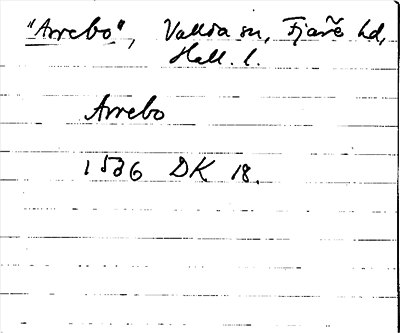 "Arrebo", Vallda sn, Fjäre hd,
Hall. l.
Arrebo
1536 DK 18.